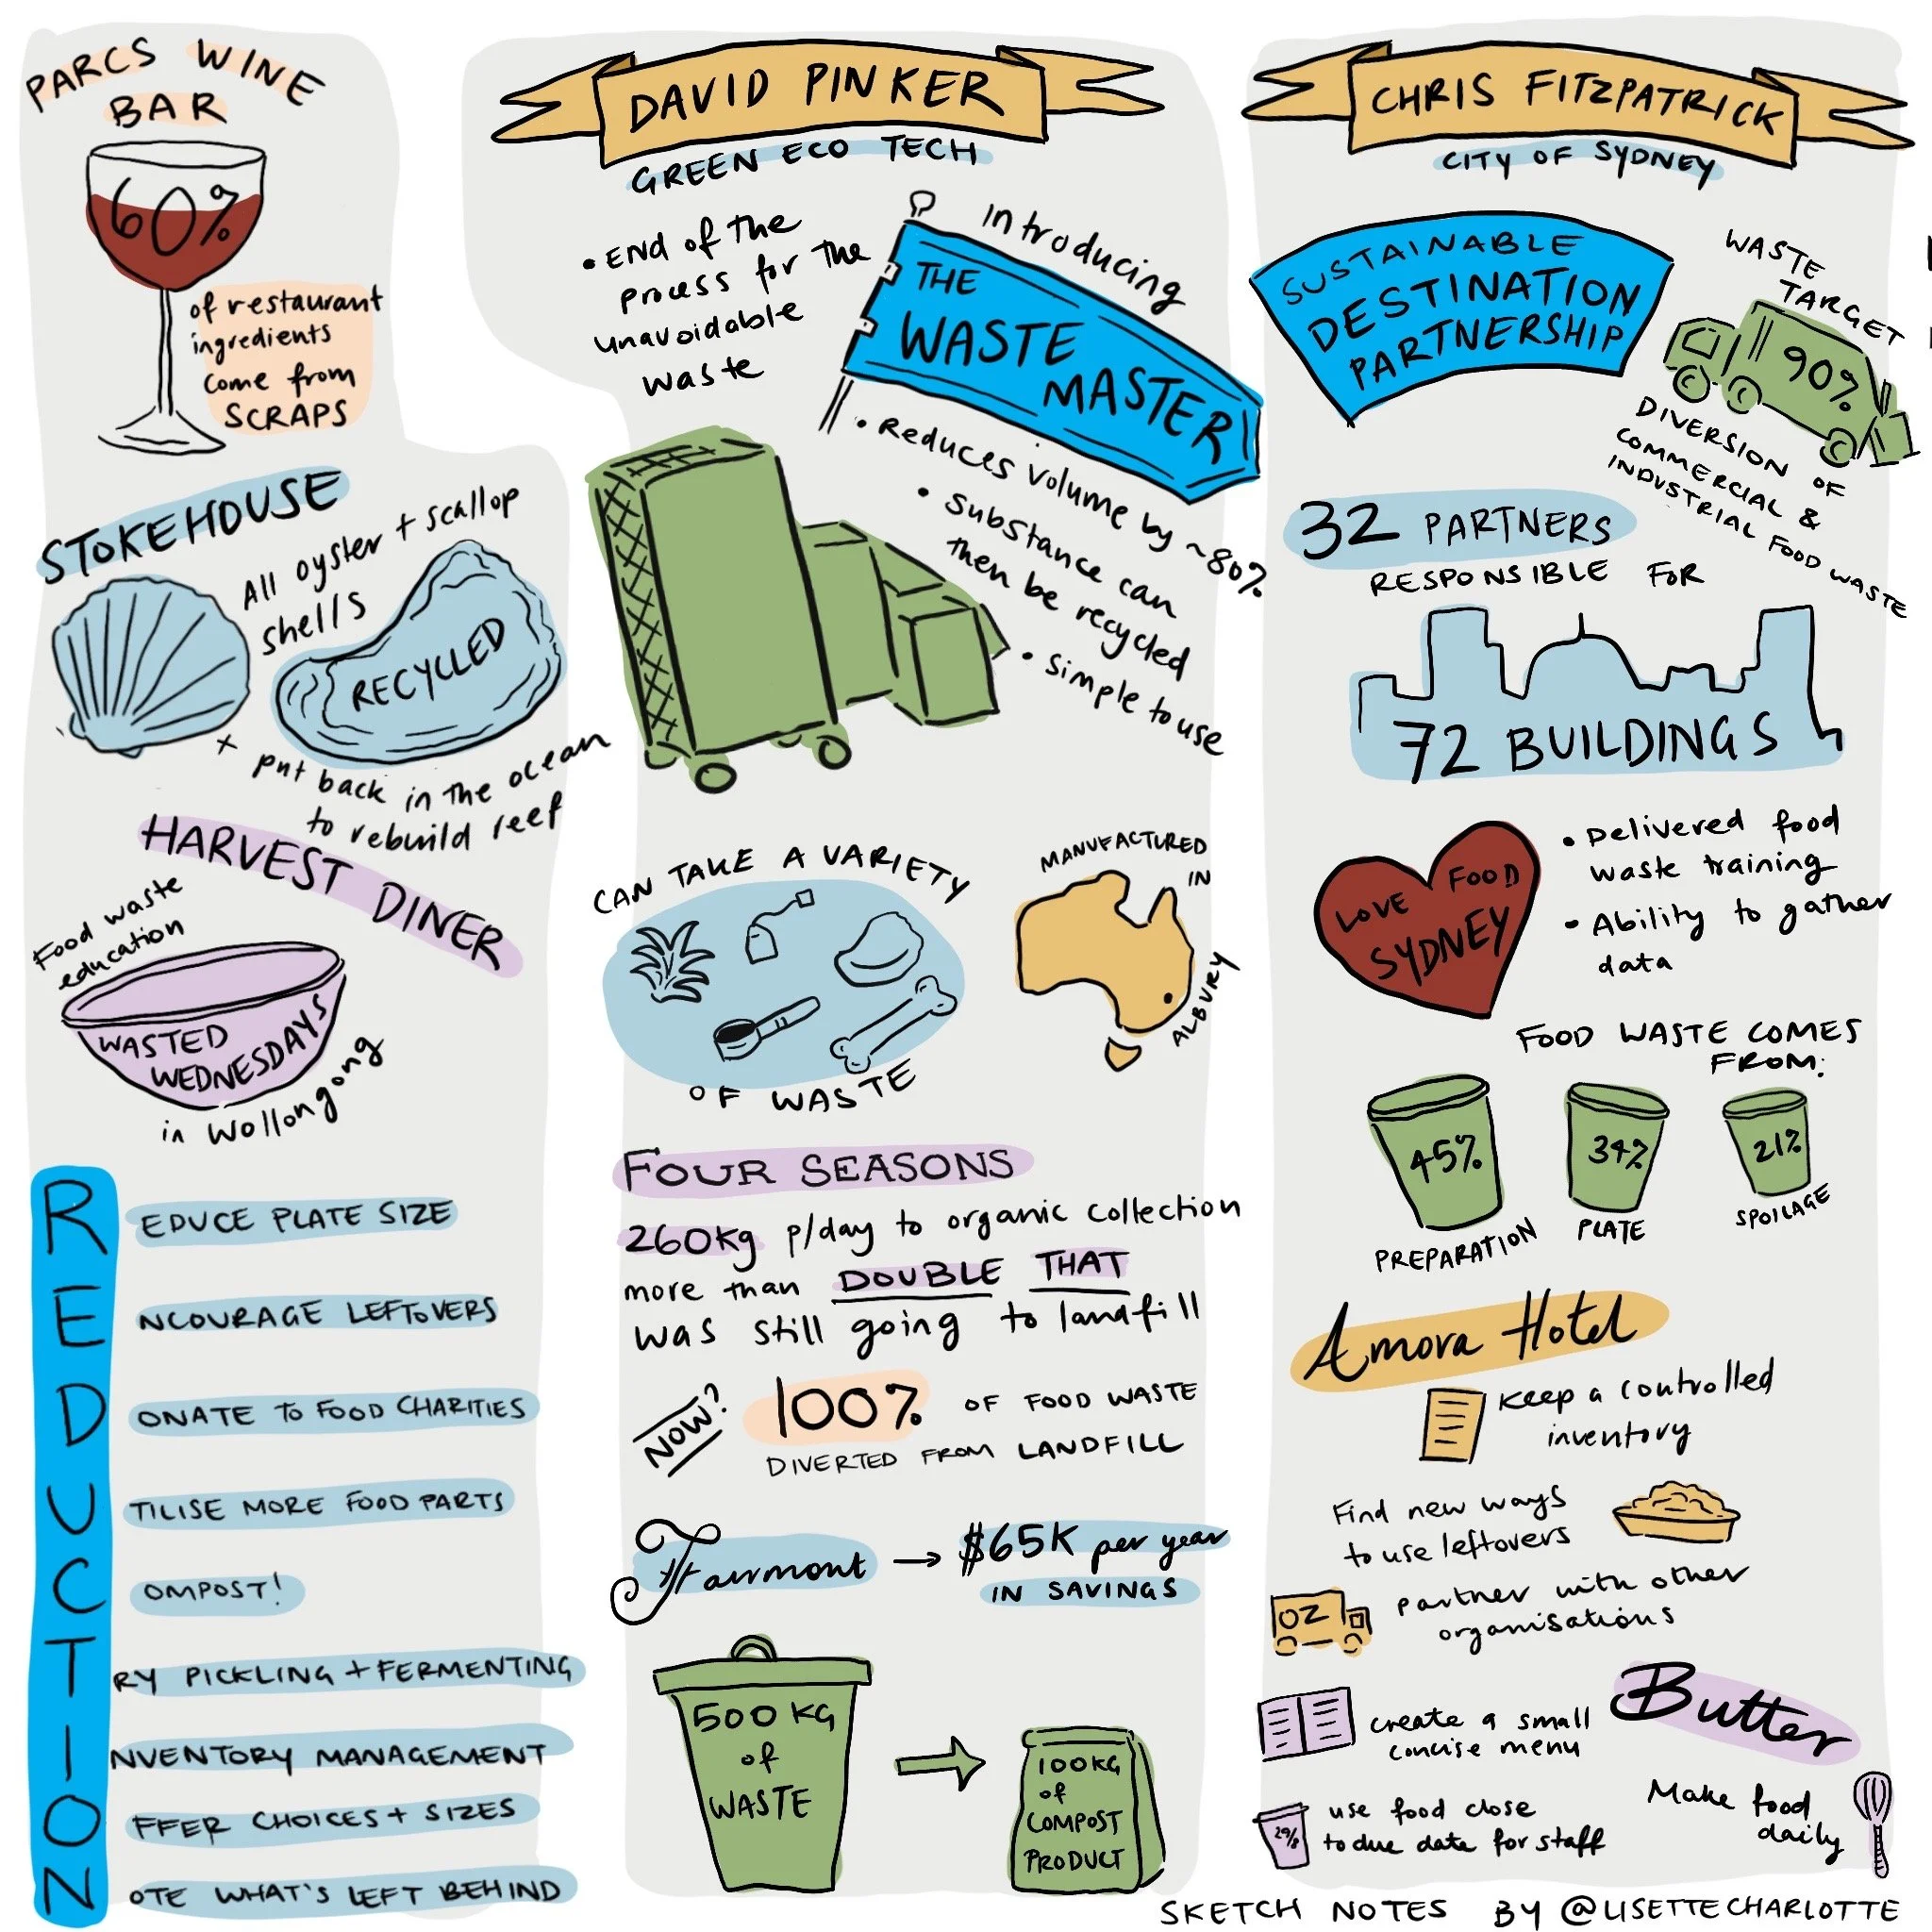 PARCS WINE
BAR
60%
of restaurant
ingredients
come from
SCRAPS
STOKEHOUSE
All oyster + scallop
shells
RECYCLED
+ put back in the ocean
to rebuild reef
HARVEST DINER
Food waste
education
WASTED
WEDNESDAYS
in Wollongong
REDUCE PLATE SIZE
ENCOURAGE LEFTOVERS
DONATE TO FOOD CHARITIES
UTILISE MORE FOOD PARTS
COMPOST!
TRY PICKLING + FERMENTING
INVENTORY MANAGEMENT
OFFER CHOICES + SIZES
NOTE WHAT'S LEFT BEHIND
DAVID PINKER
GREEN ECO TECH
• END of the
process for the
unavoidable
waste
introducing
THE
WASTE
MASTER
• Reduces volume by ~80%
• substance can
then be recycled
• simple to use
CAN TAKE A VARIETY
OF WASTE
MANUFACTURED
IN
ALBURY
FOUR SEASONS
260kg p/day to organic collection
more than DOUBLE THAT
was still going to landfill
NOW?
100% OF FOOD WASTE
DIVERTED FROM LANDFILL
Fairmont → $65K per year
IN SAVINGS
500 KG
of
WASTE
100KG
of
COMPOST
PRODUCT
CHRIS FITZPATRICK
CITY OF SYDNEY
SUSTAINABLE
DESTINATION
PARTNERSHIP
WASTE
TARGET
90%
DIVERSION OF
COMMERCIAL &
INDUSTRIAL FOOD WASTE
32 PARTNERS
RESPONSIBLE FOR
72 BUILDINGS
LOVE FOOD
SYDNEY
• Delivered food
waste training
• Ability to gather
data
FOOD WASTE COMES
FROM:
45%
PREPARATION
34%
PLATE
21%
SPOILAGE
Amora Hotel
Keep a controlled
inventory
Find new ways
to use leftovers
OZ
partner with other
organisations
Butter
create a small
concise menu
use food close
to due date for staff
Make food
daily
SKETCH NOTES BY @LISETTECHARLOTTE